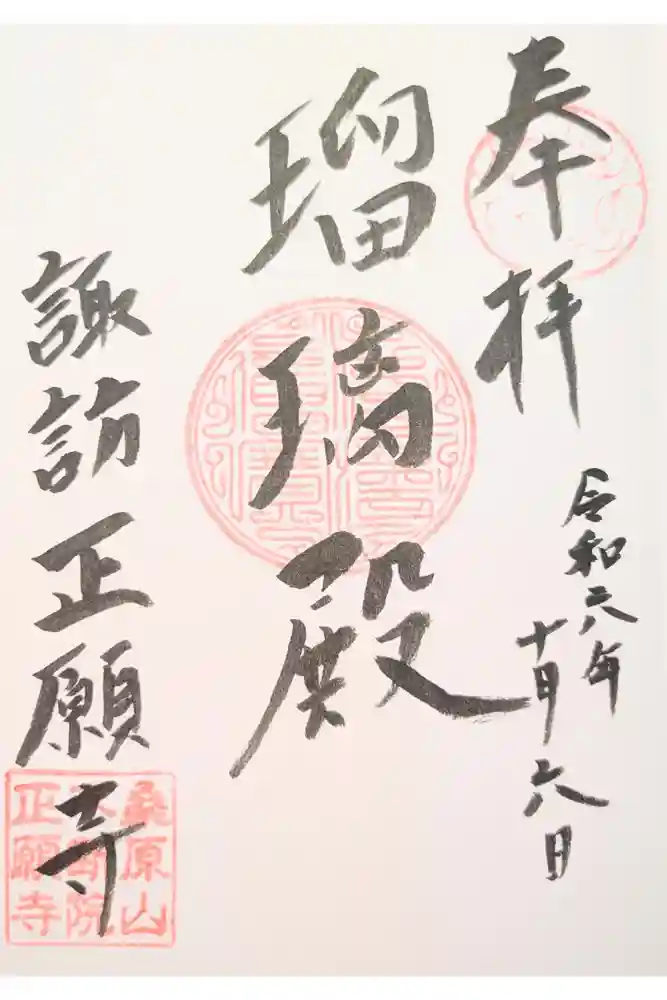 奉拝
令和六年
十月六日
瑠璃殿
諏訪正願寺
桑原山
正願寺